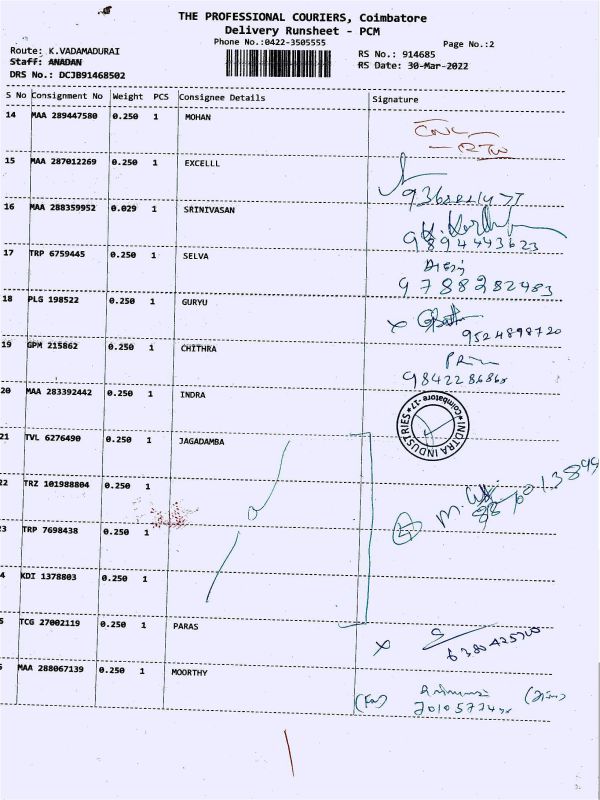 THE PROFESSIONAL COURIERS, Coimbatore
Delivery Runsheet - PCM
Phone No.:0422-3505555
Page No.:2
Route: K.VADAMADURAI
Staff: ANADAN
DRS No.: DCJB91468502
RS No.: 914685
RS Date: 30-Mar-2022
S No Consignment No Weight PCS Consignee Details Signature
14 MAA 289447580 0.250 1 MOHAN
15 MAA 287012269 0.250 1 EXCELLL
16 MAA 288359952 0.029 1 SRINIVASAN
9894443623
17 TRP 6759445 0.250 1 SELVA
9788282483
18 PLG 198522 0.250 1 GURYU
9524898720
19 GPM 215862 0.250 1 CHITHRA
20 MAA 283392442 0.250 1 INDRA
INDTRA INDUSTRIES
Coimbatore -17
21 TVL 6276490 0.250 1 JAGADAMBA
22 TRZ 101988804 0.250 1
3 TRP 7698438 0.250 1
4 KDI 1378803 0.250 1
5 TCG 27002119 0.250 1 PARAS
MAA 288067139 0.250 1 MOORTHY